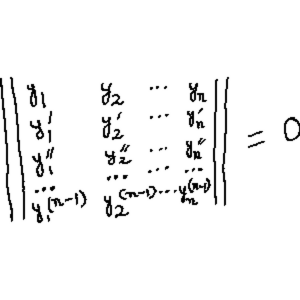 ‖ y₁ y₂ ⋯ yₙ ‖
‖ y₁′ y₂′ ⋯ yₙ′ ‖
‖ y₁″ y₂″ ⋯ yₙ″ ‖ = 0
‖ ⋯ ⋯ ⋯ ⋯ ‖
‖ y₁⁽ⁿ⁻¹⁾ y₂⁽ⁿ⁻¹⁾ ⋯ yₙ⁽ⁿ⁻¹⁾ ‖